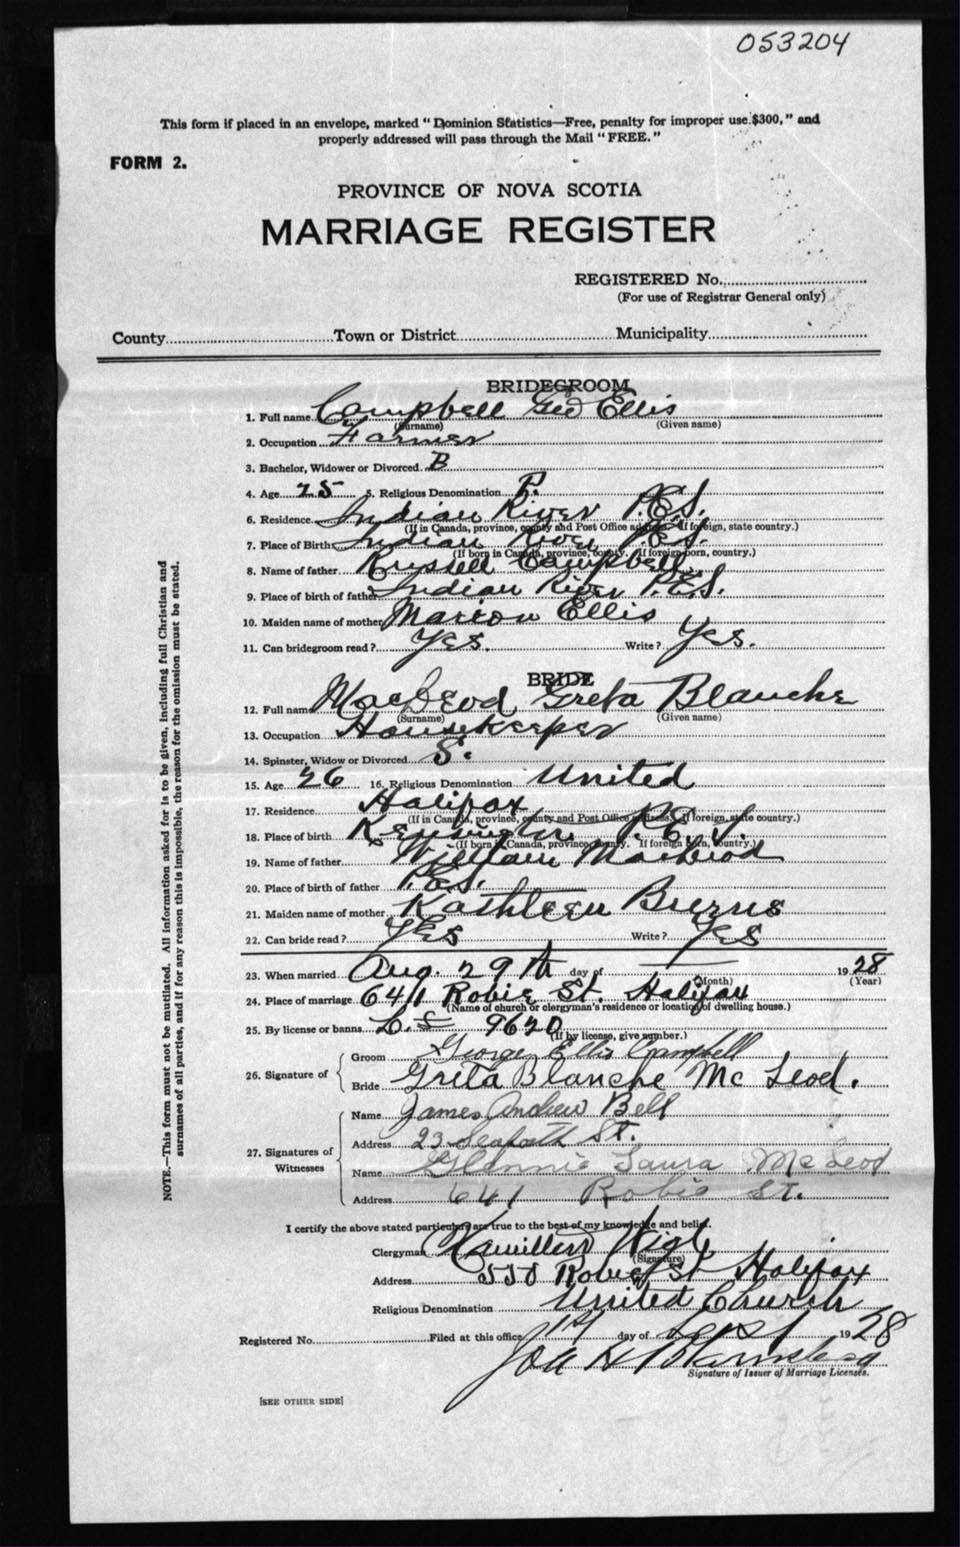 053204
This form if placed in an envelope, marked "Dominion Statistics—Free, penalty for improper use $300," and
properly addressed will pass through the Mail "FREE."
FORM 2.
PROVINCE OF NOVA SCOTIA
MARRIAGE REGISTER
REGISTERED No.
(For use of Registrar General only)
County Town or District Municipality
BRIDEGROOM
1. Full name Campbell Geo Ellis
(Surname) (Given name)
2. Occupation Farmer
3. Bachelor, Widower or Divorced B
4. Age 25 5. Religious Denomination P.
6. Residence Indian River P.E.I.
(If in Canada, province, county and Post Office address. If foreign, state country.)
7. Place of Birth Indian River P.E.I.
(If born in Canada, province, county. If foreign born, country.)
8. Name of father Russell Campbell
9. Place of birth of father Indian River P.E.I.
10. Maiden name of mother Marion Ellis
11. Can bridegroom read? Yes. Write? Yes.
BRIDE
12. Full name MacLeod Greta Blanche
(Surname) (Given name)
13. Occupation Housekeeper
14. Spinster, Widow or Divorced S.
15. Age 26 16. Religious Denomination United
17. Residence Halifax
(If in Canada, province, county and Post Office address. If foreign, state country.)
18. Place of birth Kensington P.E.I.
(If born in Canada, province, county. If foreign born, country.)
19. Name of father William MacLeod
20. Place of birth of father P.E.I.
21. Maiden name of mother Kathleen Burns
22. Can bride read? Yes Write? Yes
23. When married Aug. 29th day of 1928
(Month) (Year)
24. Place of marriage 641 Robie St. Halifax
(Name of church or clergyman's residence or location of dwelling house.)
25. By license or banns L. 9620
(If by license, give number.)
26. Signature of
Groom George Ellis Campbell
Bride Greta Blanche McLeod.
27. Signatures of Witnesses
Name James Andrew Bell
Address 23 Seaforth St.
Name Glennie Laura McLeod
Address 641 Robie St.
I certify the above stated particulars are true to the best of my knowledge and belief.
Clergyman
(Signature)
Address 550 Robie St Halifax
Religious Denomination United Church
Registered No. Filed at this office 1st day of Sept 1928
Signature of Issuer of Marriage Licenses.
[SEE OTHER SIDE]
NOTE.—This form must not be mutilated. All information asked for is to be given, including full Christian and
surnames of all parties, and if for any reason this is impossible, the reason for the omission must be stated.